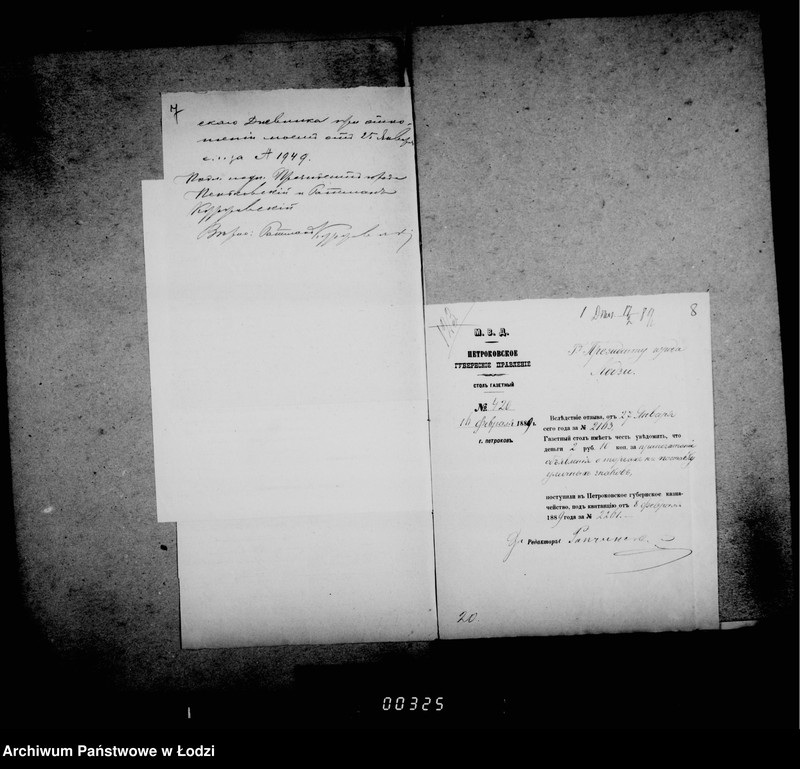 7
скаго Дневника при отно-
шеніи моемъ отъ 25 Января
с. г. за № 1949.
Подл. подп. Президентъ города
Пеньковскій и Ратманъ
Вѣрно: Ратманъ
8
М. В. Д.
ПЕТРОКОВСКОЕ
ГУБЕРНСКОЕ ПРАВЛЕНІЕ
СТОЛЪ ГАЗЕТНЫЙ
№ 420
Февраля 1889 г.
г. ПЕТРОКОВЪ.
Г. Президенту города
Лодзи.
Вслѣдствіе отзыва, отъ 27 Января
сего года за № 2163
Газетный столъ имѣетъ честь увѣдомить, что
деньги 2 руб. 10 коп. за припечатаніе
объявленія о торгахъ на поставку
знаковъ,
поступили въ Петроковское губернское казна-
чейство, подъ квитанцію отъ 8 Февраля
1889 года за № 2201.
Редактора
20
00325
Archiwum Państwowe w Łodzi